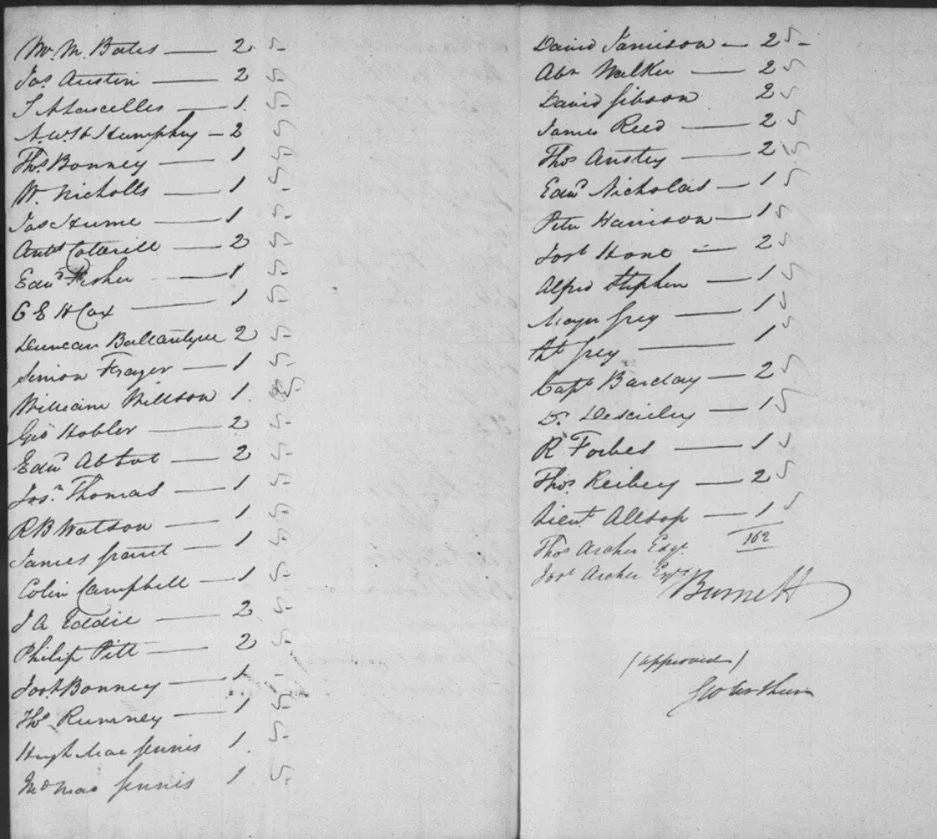 Wm. M. Bates — 2 5
Jas. Austin — 2 5
T A Lascelles — 1. 5
A. W. H Humphrey — 2 5
Thos. Bonney — 1 5
W. Nicholls — 1 5
Jas Hume — 1 5
Anty Cotterell — 2 5
Edwd. Fisher — 1 5
G E H Cox — 1 5
Duncan Ballantyne 2 5
Simon Frazer — 1 5
William Willson 1. 5
Geo Hobler — 2 5
Edwd Abbot — 2 5
Josh. Thomas — 1 5
R B Watson — 1 5
James Grant — 1 5
Colin Campbell — 1 5
J A Eddie — 2 5
Philip Pitt — 2 5
Josh Bonney — 1 5
Thos Rumney — 1 5
Hugh Mac Ginnis 1. 5
Mac Ginnis 1 5
David Jamieson — 2 5
Abm Walker — 2 5
David Gibson 2 5
James Reed — 2 5
Thos Anstey — 2 5
Edwd Nicholas — 1 5
Peter Harrison — 1 5
Josh Hone — 2 5
Alfred Stephen — 1 5
Major Grey — 1 5
Grey — 1 5
Capt Barclay — 2 5
Dr. Desailly — 1 5
R Forbes — 1 5
Thos. Reibey — 2 5
Lieut Allsop — 1 5
Thos Archer Esqr 102
Josh Archer Esqr
Burnett
(approved)
Geo Arthur